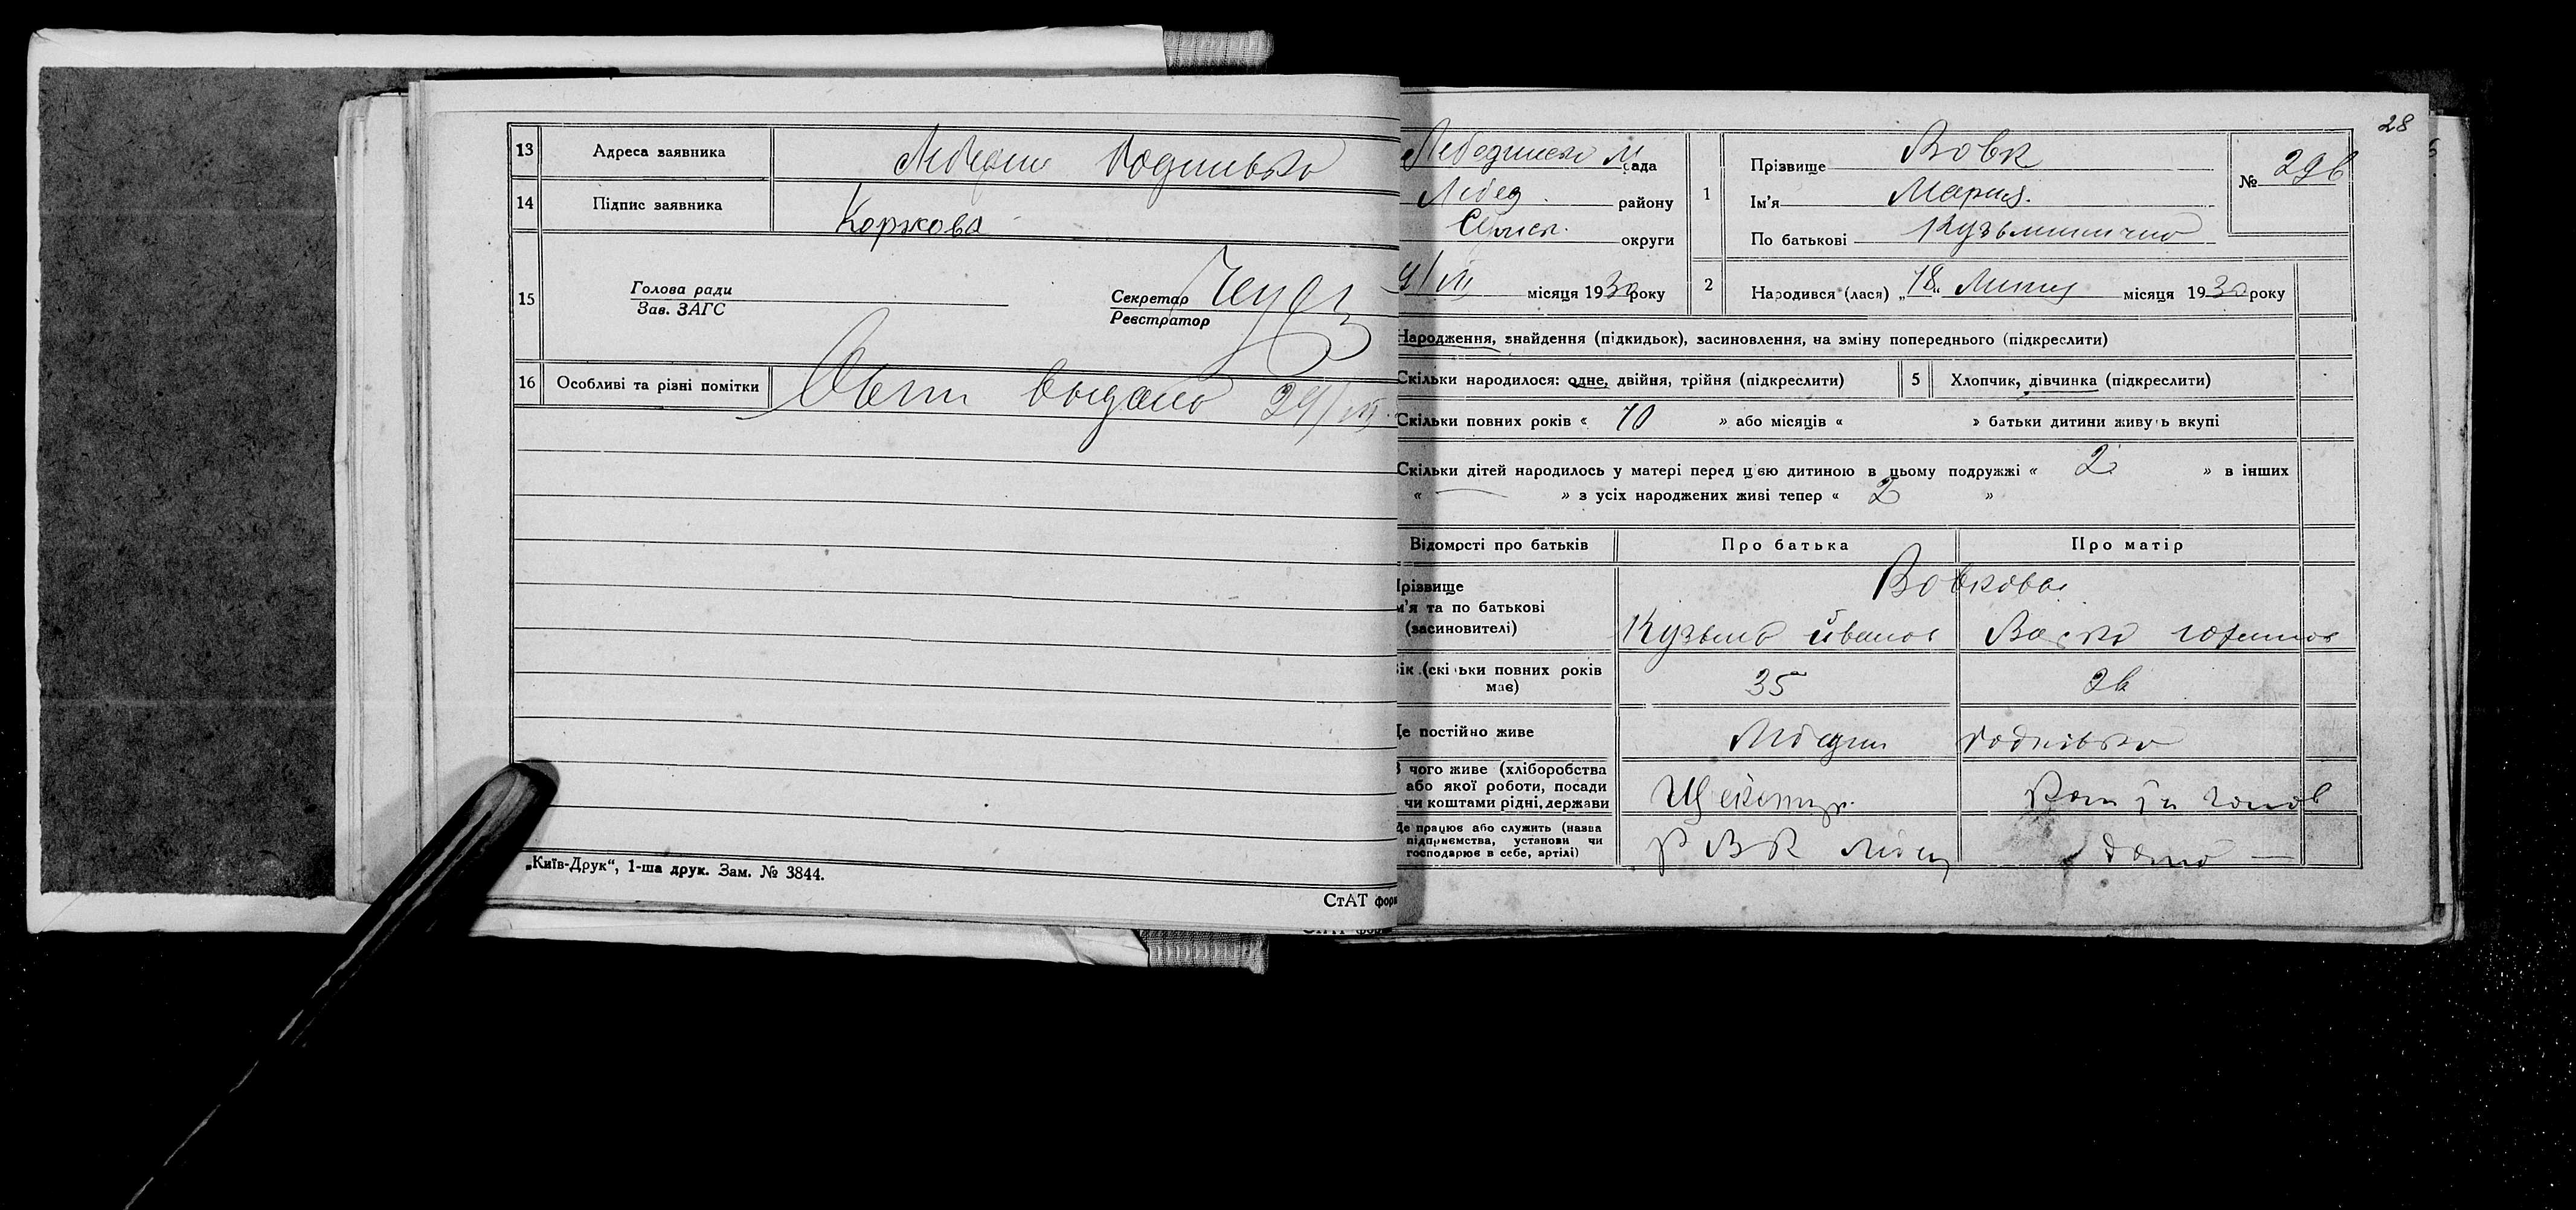 13 Адреса заявника
14 Підпис заявника Коржова
15 Голова ради
Зав. ЗАГС
Секретар
Реєстратор
16 Особливі та різні помітки видано 29/VII
„Київ-Друк“, 1-ша друк. Зам. № 3844.
СтАТ форм
28
Лебединськ м рада
Лебед. району
Сумск. округи
місяця 1930 року
1 Прізвище Вовк
Ім'я Мария.
По батькові Кузьминична
№ 296
2 Народився (лася) „18“ Липня місяця 1930 року
Народження, знайдення (підкидьок), засиновлення, на зміну попереднього (підкреслити)
Скільки народилося: одне, двійня, трійня (підкреслити) 5 Хлопчик, дівчинка (підкреслити)
Скільки повних років « 10 » або місяців « » батьки дитини живуть вкупі
Скільки дітей народилось у матері перед цією дитиною в цьому подружжі « 2 » в інших
« — » з усіх народжених живі тепер « 2 »
Відомості про батьків Про батька Про матір
Прізвище
м'я та по батькові
(засиновителі)
Вовкова
Кузьма Иванов
Вік (скільки повних років має) 35 26
Де постійно живе
З чого живе (хліборобства або якої роботи, посади чи коштами рідні, держави
Де працює або служить (назва підприємства, установи чи господарює в себе, артілі) РВК